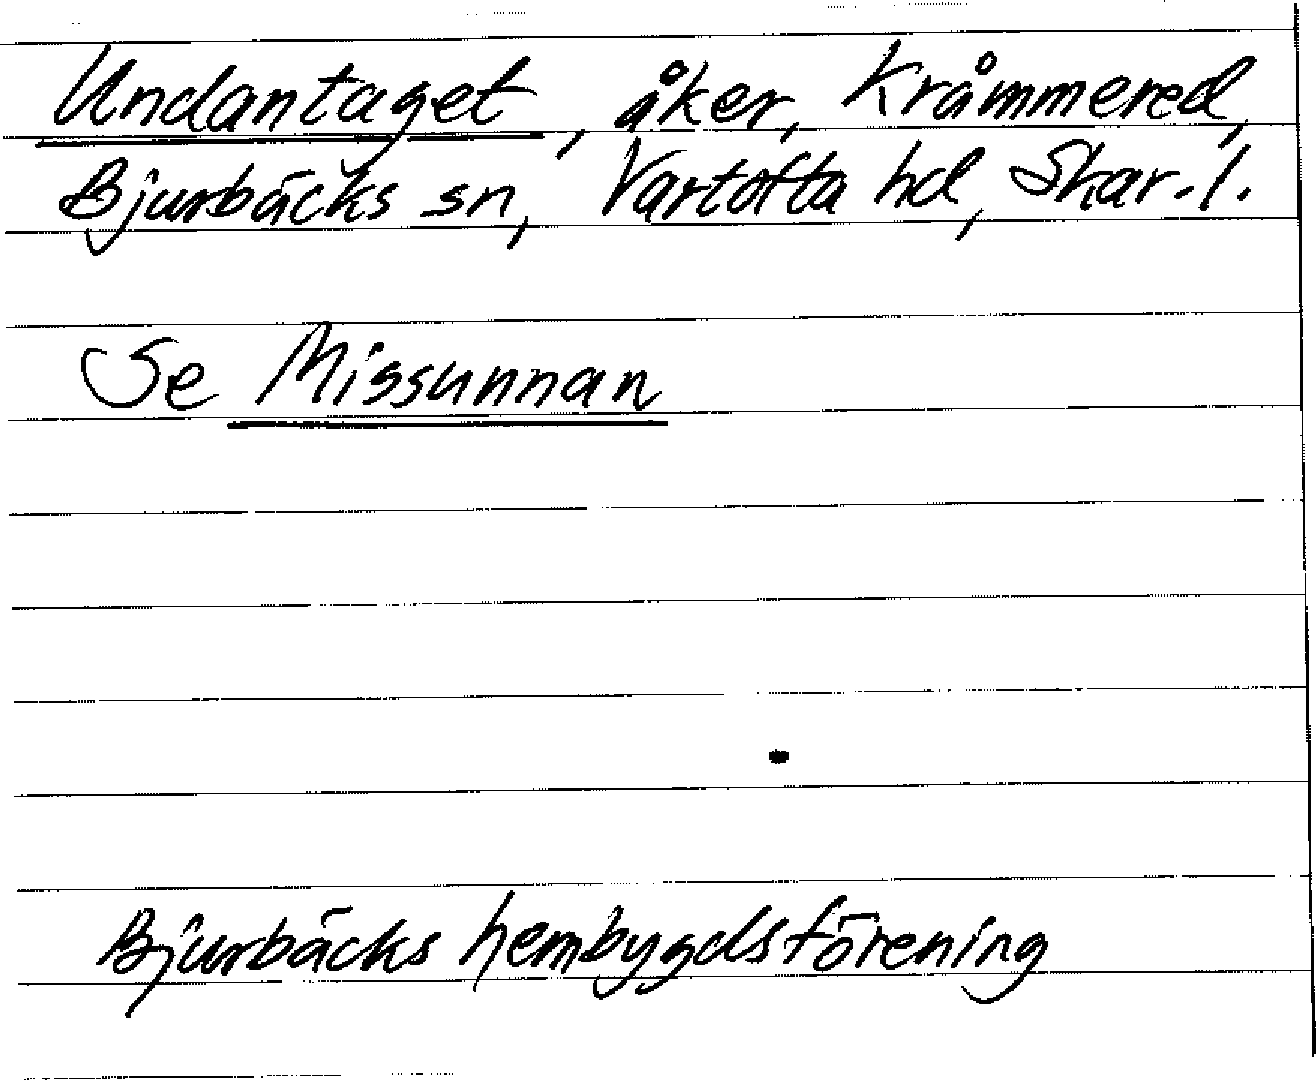 Undantaget, åker, Kråmmered,
Bjurbäcks sn, Vartofta hd, Skar. l.
Se Missunnan
Bjurbäcks hembygdsförening